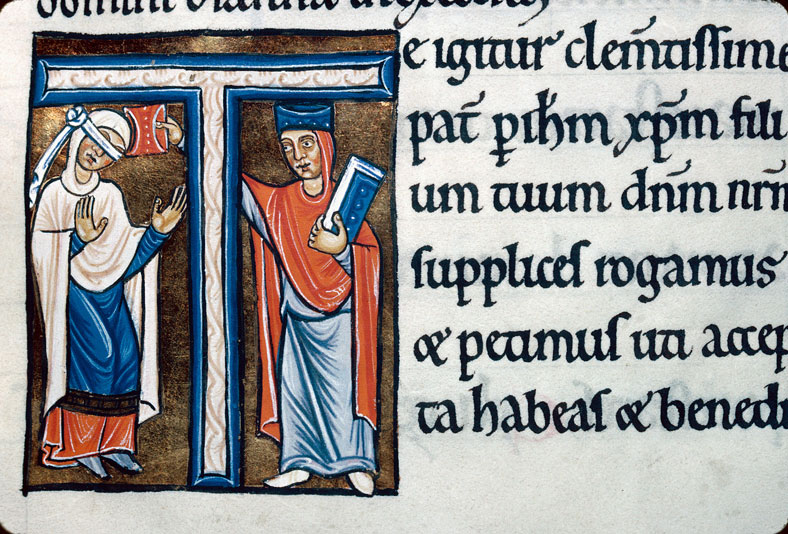 e igitur clem̄tissime
pat̄ ꝑ ih̄m xp̄m fili
um tuum dn̄m nr̄m
supplices rogamus
& petimus uti accep
ta habeas & benedi